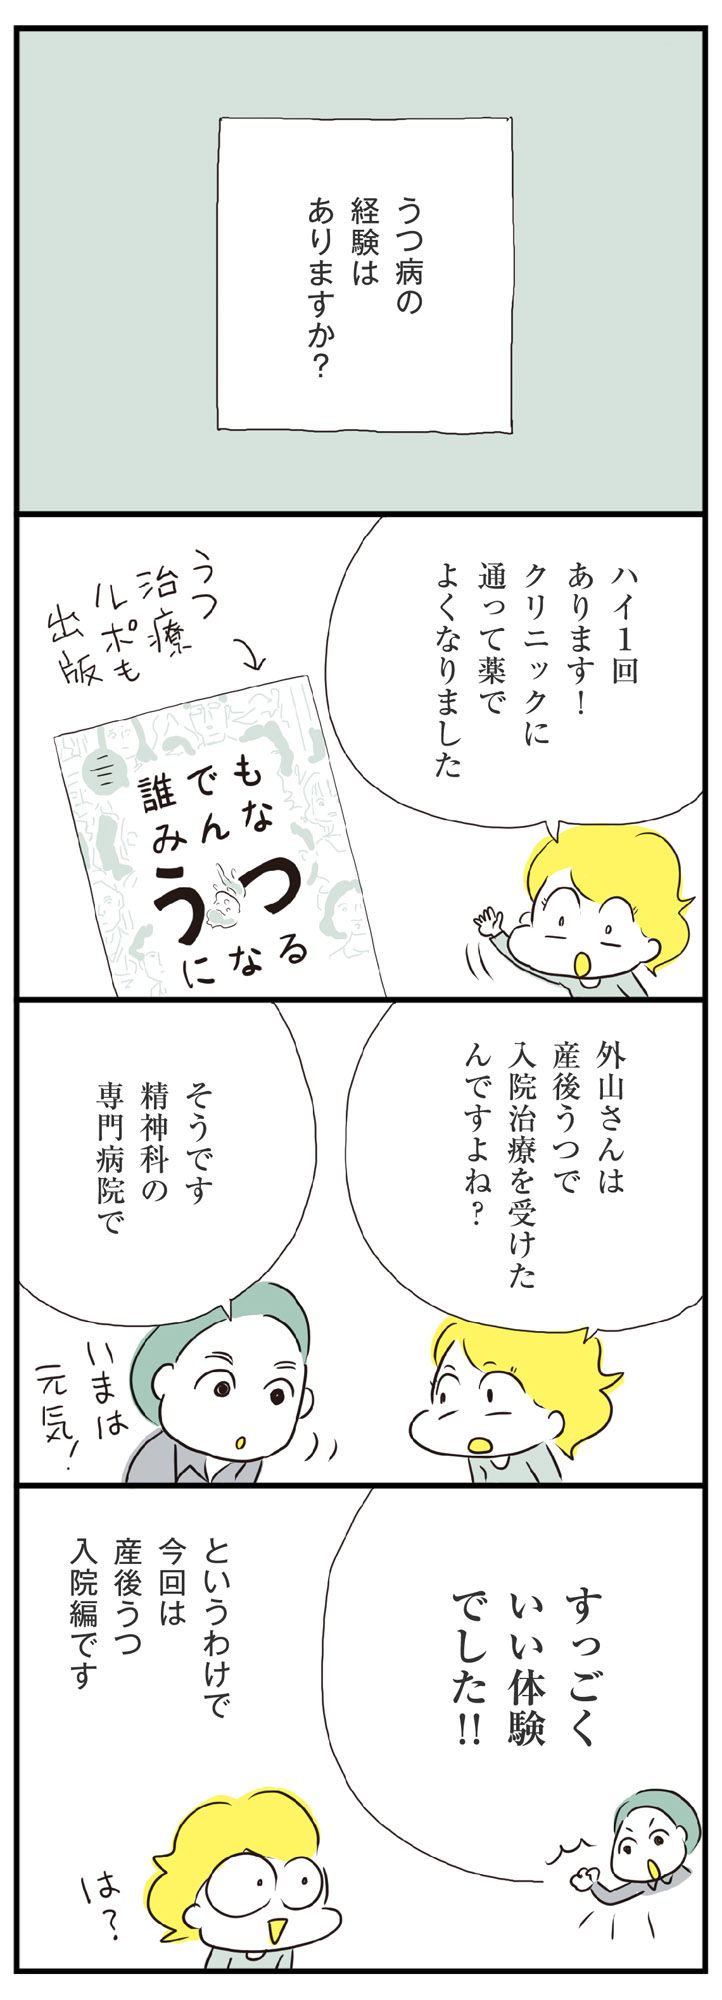 うつ病の
経験は
ありますか？
ハイ1回
あります！
クリニックに
通って薬で
よくなりました
うつ
治療
ルポも
出版
誰でも
みんな
うつ
になる
外山さんは
産後うつで
入院治療を受けた
んですよね？
そうです
精神科の
専門病院で
いまは
元気！
すっごく
いい体験
でした!!
というわけで
今回は
産後うつ
入院編です
は？